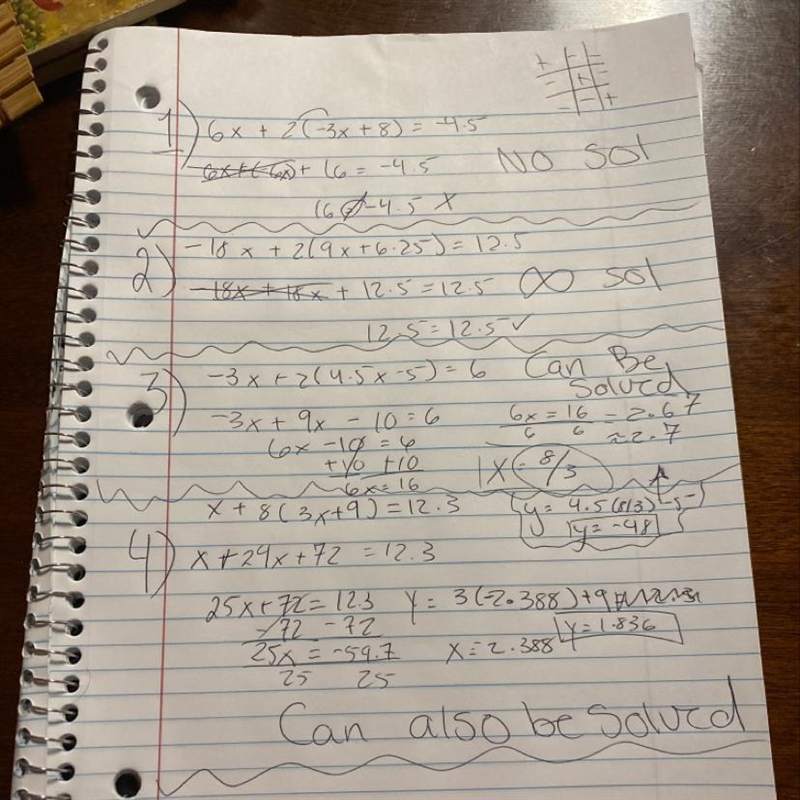 1) 6x + 2(-3x + 8) = -4.5
6x + (-6x) + 16 = -4.5 No sol
16 ≠ -4.5 X
2) -18x + 2(9x + 6.25) = 12.5
-18x + 18x + 12.5 = 12.5 ∞ sol
12.5 = 12.5 ✓
3) -3x + 2(4.5x - 5) = 6 Can Be
Solved
-3x + 9x - 10 = 6 6x = 16 = 2.67
6x - 10 = 6 6 6 ≈ 2.7
+10 +10 x = 8/3
6x = 16
x + 8(3x + 9) = 12.3 y = 4.5(8/3) - 5
y = -48
4) x + 24x + 72 = 12.3
25x + 72 = 12.3 y = 3(-2.388) + 9
-72 -72 y = 1.836
25x = -59.7 x = 2.388
25 25
Can also be Solved